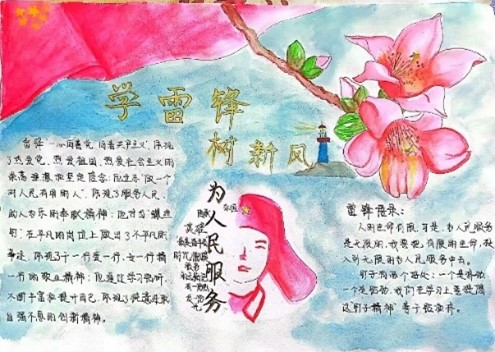 学雷锋
树新风
雷锋"一心向着党、向着共产主义",体现
了热爱党、热爱祖国、热爱社会主义的
崇高理想和坚定信念;他立志"做一个
对人民有用的人",体现了服务人民、
助人为乐的奉献精神;他甘当"螺丝
钉",在平凡的岗位上做出了不平凡的
事迹,体现了干一行爱一行、专一行精
一行的敬业精神;他通过学习钻研,
不断丰富和提升自己,体现了锐意进取
自强不息的创新精神。
为人民服务
雷锋语录:
人的生命有限,可是,为人民服务
是无限的,我要把有限的生命,投
入到无限的为人民服务中去。
钉子有两个好处:一个是挤劲
一个是钻劲,我们在学习上要提倡
这"钉子精神"善于挤和钻。